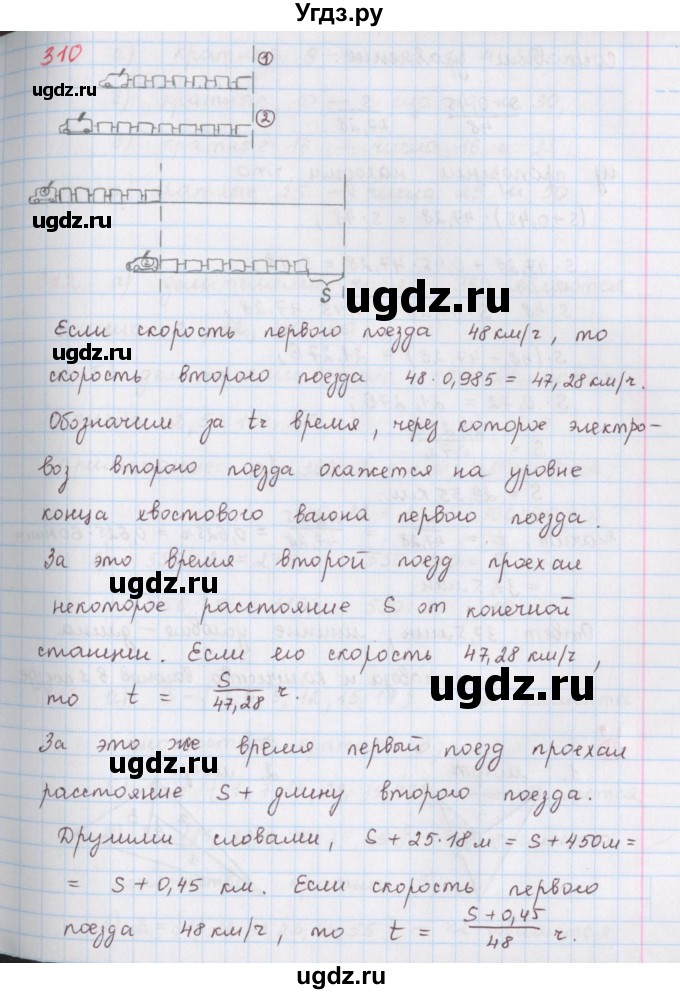 Угдз.ру
310
1
ugdz.ru
2
S
ugdz.ru
ugdz.ru
Если скорость первого поезда 48 км/ч, то
ugdz.ru
скорость второго поезда 48·0,985 = 47,28 км/ч.
Обозначим за t ч время, через которое электро-
воз второго поезда окажется на уровне
конца хвостового вагона первого поезда.
За это время второй поезд проехал
ugdz.ru
некоторое расстояние S от конечной
станции. Если его скорость 47,28 км/ч,
то t = S/47,28 ч.
ugdz.ru
За это же время первый поезд проехал
ugdz.ru
расстояние S + длину второго поезда.
Другими словами, S + 25·18 м = S + 450 м =
= S + 0,45 км. Если скорость первого
поезда 48 км/ч, то t = S+0,45/48 ч.
ugdz.ru
ugdz.ru